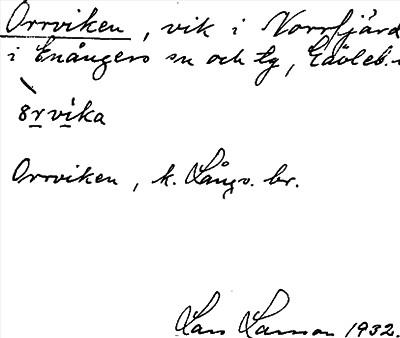 Orrviken, vik i Norrfjärd
i Enångers sn och tg, Gävleb.
8rvika
Orrviken, k. Långv. br.
Lars Larsson 1932.